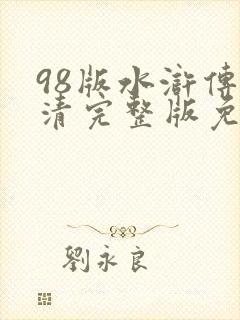 98版水滸傳
清完整版免
劉永良